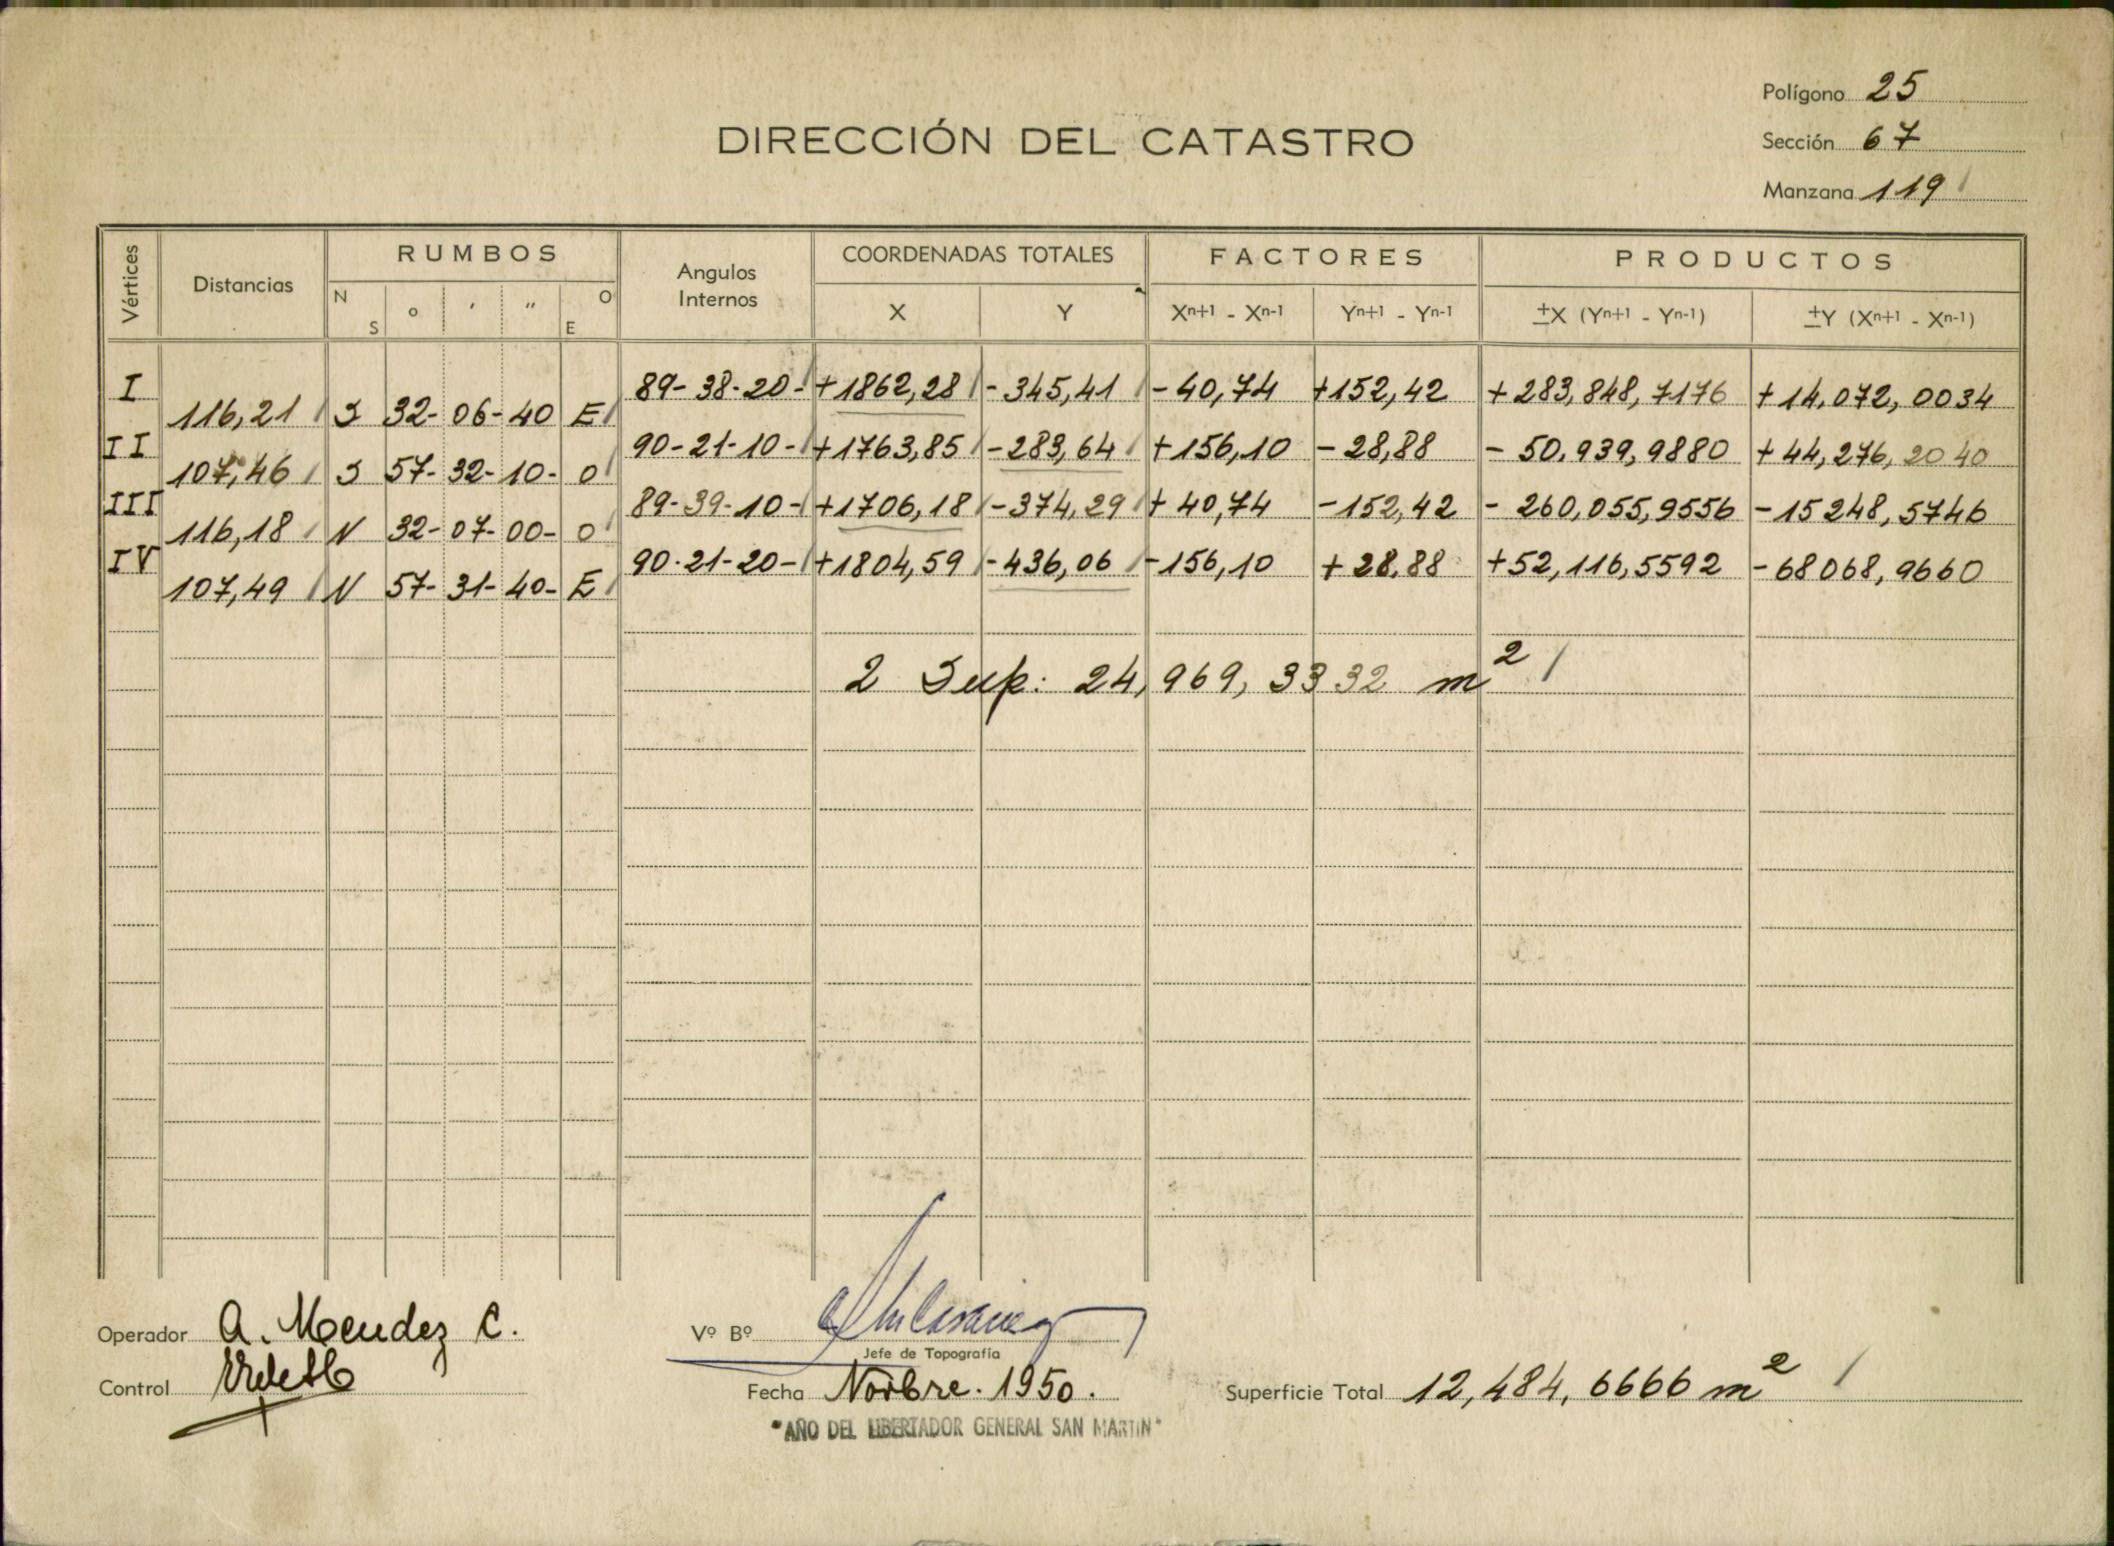 Polígono 25
DIRECCIÓN DEL CATASTRO
Sección 67
Manzana 119
Vértices Distancias RUMBOS Angulos Internos COORDENADAS TOTALES FACTORES PRODUCTOS
N S ° ' " O E X Y Xn+1 - Xn-1 Yn+1 - Yn-1 ±X (Yn+1 - Yn-1) ±Y (Xn+1 - Xn-1)
I 89-38-20- +1862,28 -345,41 -40,74 +152,42 +283,848,7176 +14,072,0034
116,21 S 32-06-40 E
II 90-21-10- +1763,85 -283,64 +156,10 -28,88 -50,939,9880 +44,276,2040
107,46 S 57-32-10- O
III 89-39-10- +1706,18 -374,29 +40,74 -152,42 -260,055,9556 -15248,5746
116,18 N 32-07-00- O
IV 90-21-20- +1804,59 -436,06 -156,10 +28,88 +52,116,5592 -68068,9660
107,49 N 57-31-40- E
2 Sup: 24,969,3332 m2
Operador A. Mendez C.
Vº Bº
Jefe de Topografía
Control
Fecha Novbre. 1950.
Superficie Total 12,484,6666 m2
"AÑO DEL LIBERTADOR GENERAL SAN MARTIN"